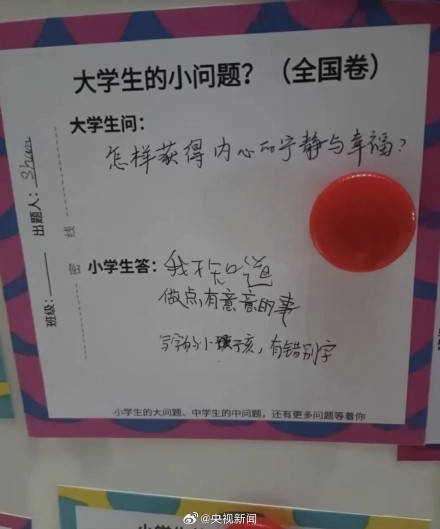 大学生的小问题？（全国卷）
大学生问：
怎样获得内心的宁静与幸福？
出题人：shuen
班级：
密
线
小学生答：我不知道
做点有意意的事
写字的小孩，有错别字
小学生的大问题、中学生的中问题，还有更多问题等着你
@央视新闻